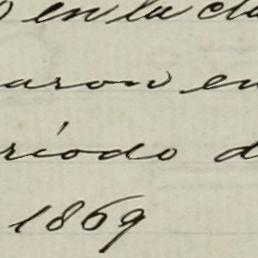 en la cla
aron en
ríodo d
1869